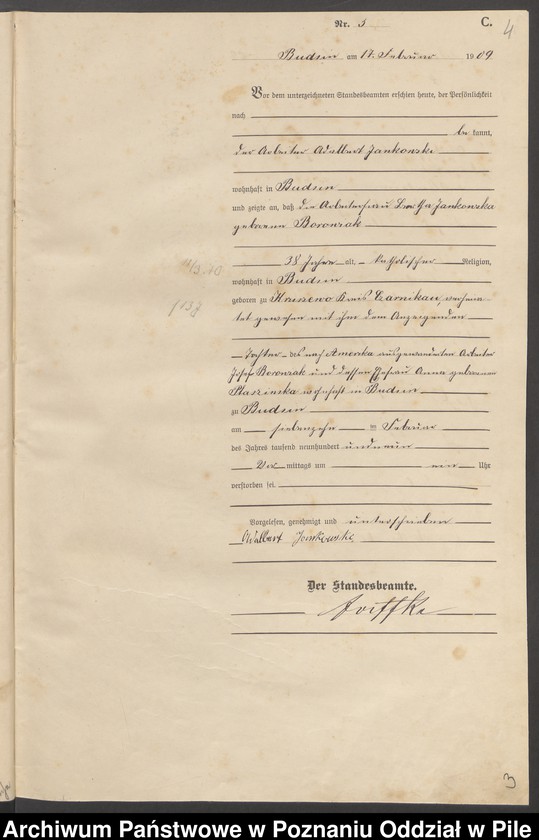 Nr. 3
C.
4
Budsin am 17. Februar 1909
Vor dem unterzeichneten Standesbeamten erschien heute, der Persönlichkeit
nach
be kannt,
der Arbeiter Adalbert Jankowski
wohnhaft in Budsin
und zeigte an, daß die Arbeiterfrau Jankowska
geborene Borowiak
38 Jahre alt, katholischer Religion,
wohnhaft in Budsin
geboren zu Kreis Czarnikau, verheira-
tet gewesen mit ihm dem Anzeigenden
Tochter des nach Amerika ausgewanderten Arbeiter
Josef Borowiak und dessen Ehefrau Anna geborenen
wohnhaft in Budsin
zu Budsin
am siebenzehn ten Februar
des Jahres tausend neunhundert und neun
Vor mittags um ein Uhr
verstorben sei.
Vorgelesen, genehmigt und unterschrieben
Adalbert Jankowski
Der Standesbeamte.
3
Archiwum Państwowe w Poznaniu Oddział w Pile